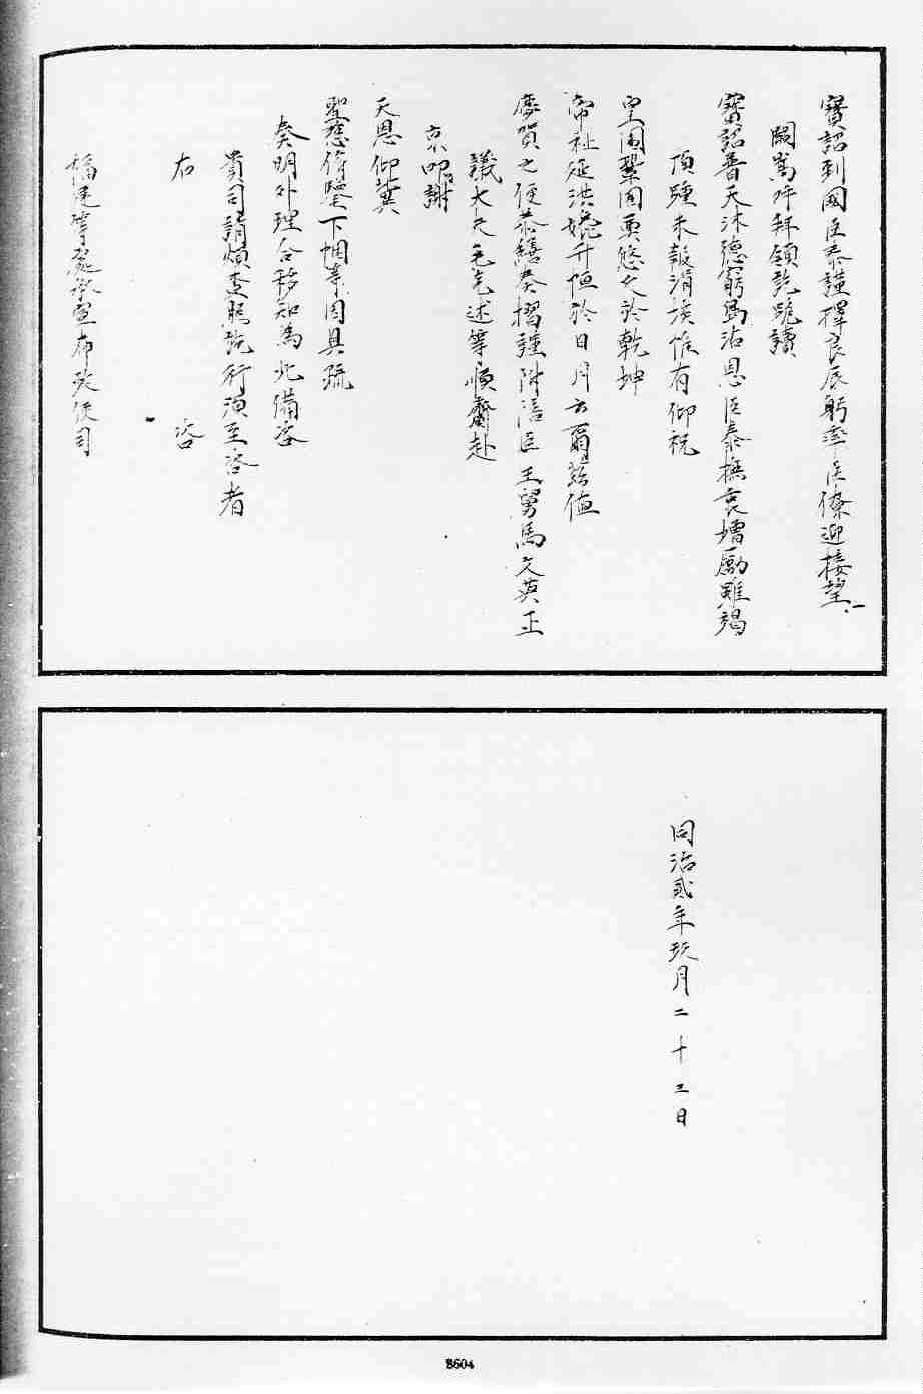 寶詔到國臣泰謹擇良辰躬率臣僚迎接望
闕嵩呼拜領訖跪讀
寶詔普天沐德窮島沾恩臣泰撫衷增勵雖竭
頂踵未報涓埃惟有仰祝
皇圖鞏固更悠久於乾坤
帝祉延洪媲升恒於日月云爾茲值
慶賀之便恭繕奏摺謹附陪臣王舅馬文英正
議大夫毛克述等順齎赴
京叩謝
天恩仰冀
聖慈俯鑒下悃等因具疏
奏明外理合移知為此備咨
貴司請煩查照施行須至咨者
右 咨
福建等處承宣布政使司
同治貳年玖月二十三日
8604